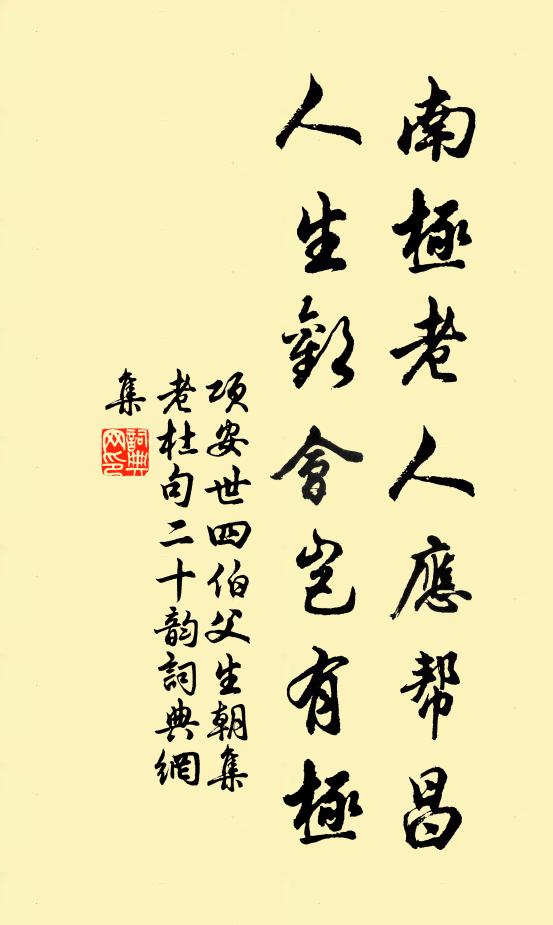 南極老人應帮昌
人生歡會豈有極
項安世四伯父生朝集
老杜句二十韵詞典網
集
詞典网印